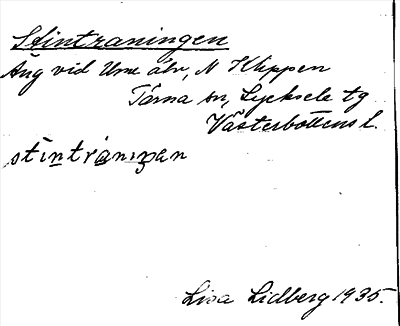 Stintraningen
Äng vid Ume älv, N Klippen
Tärna sn, Lycksele tg
Västerbottens l.
stintrániŋan
Lisa Lidberg 1935.